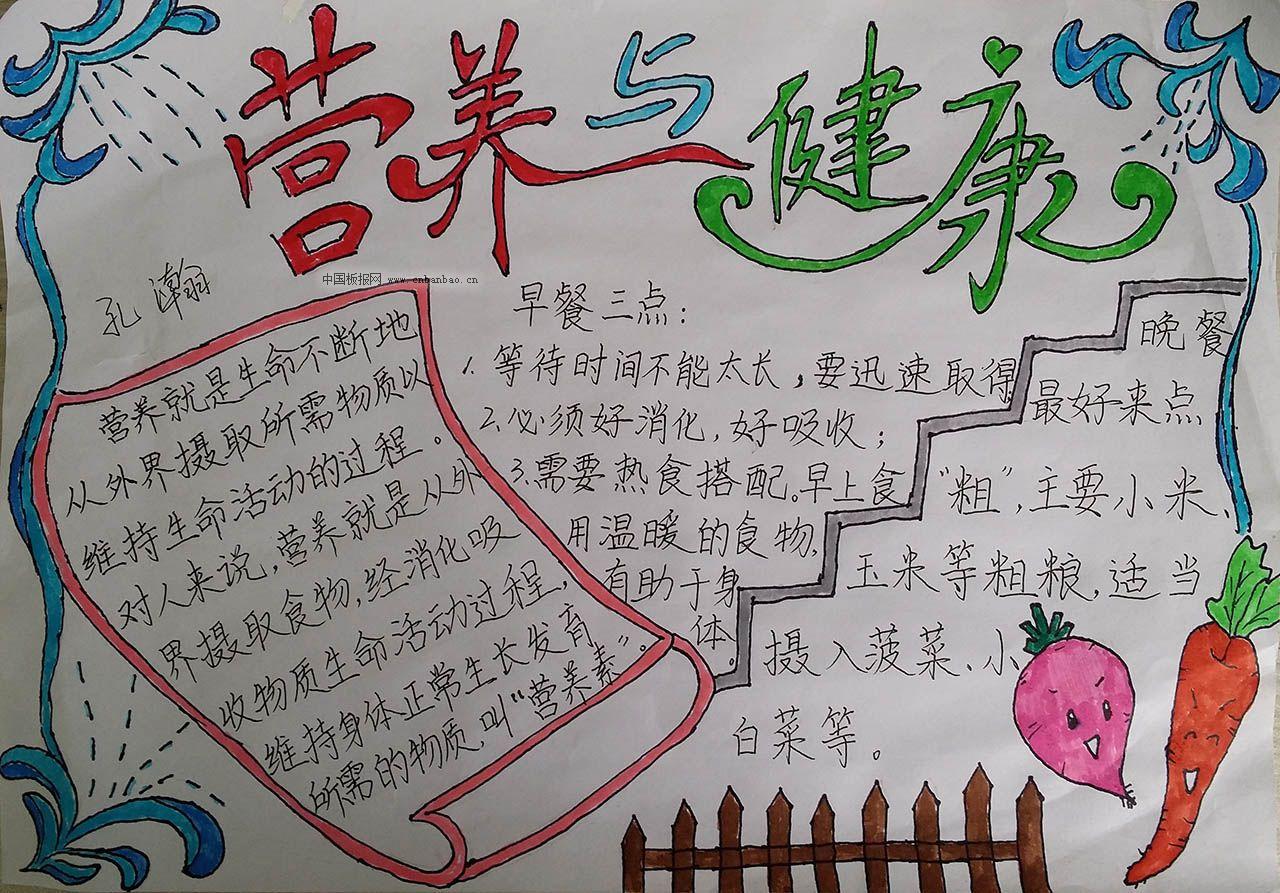 营养与健康
中国板报网 www.cnbanbao.cn
孔瀚
营养就是生命不断地
从外界摄取所需物质以
维持生命活动的过程。
对人来说,营养就是从外
界摄取食物,经消化吸
收物质生命活动过程,
维持身体正常生长发育
所需的物质,叫“营养素”。
早餐三点:
1. 等待时间不能太长,要迅速取得
2. 必须好消化,好吸收;
3. 需要热食搭配。早上食
用温暖的食物,
有助于身
体。
晚餐
最好来点
“粗”,主要小米、
玉米等粗粮,适当
摄入菠菜、小
白菜等。